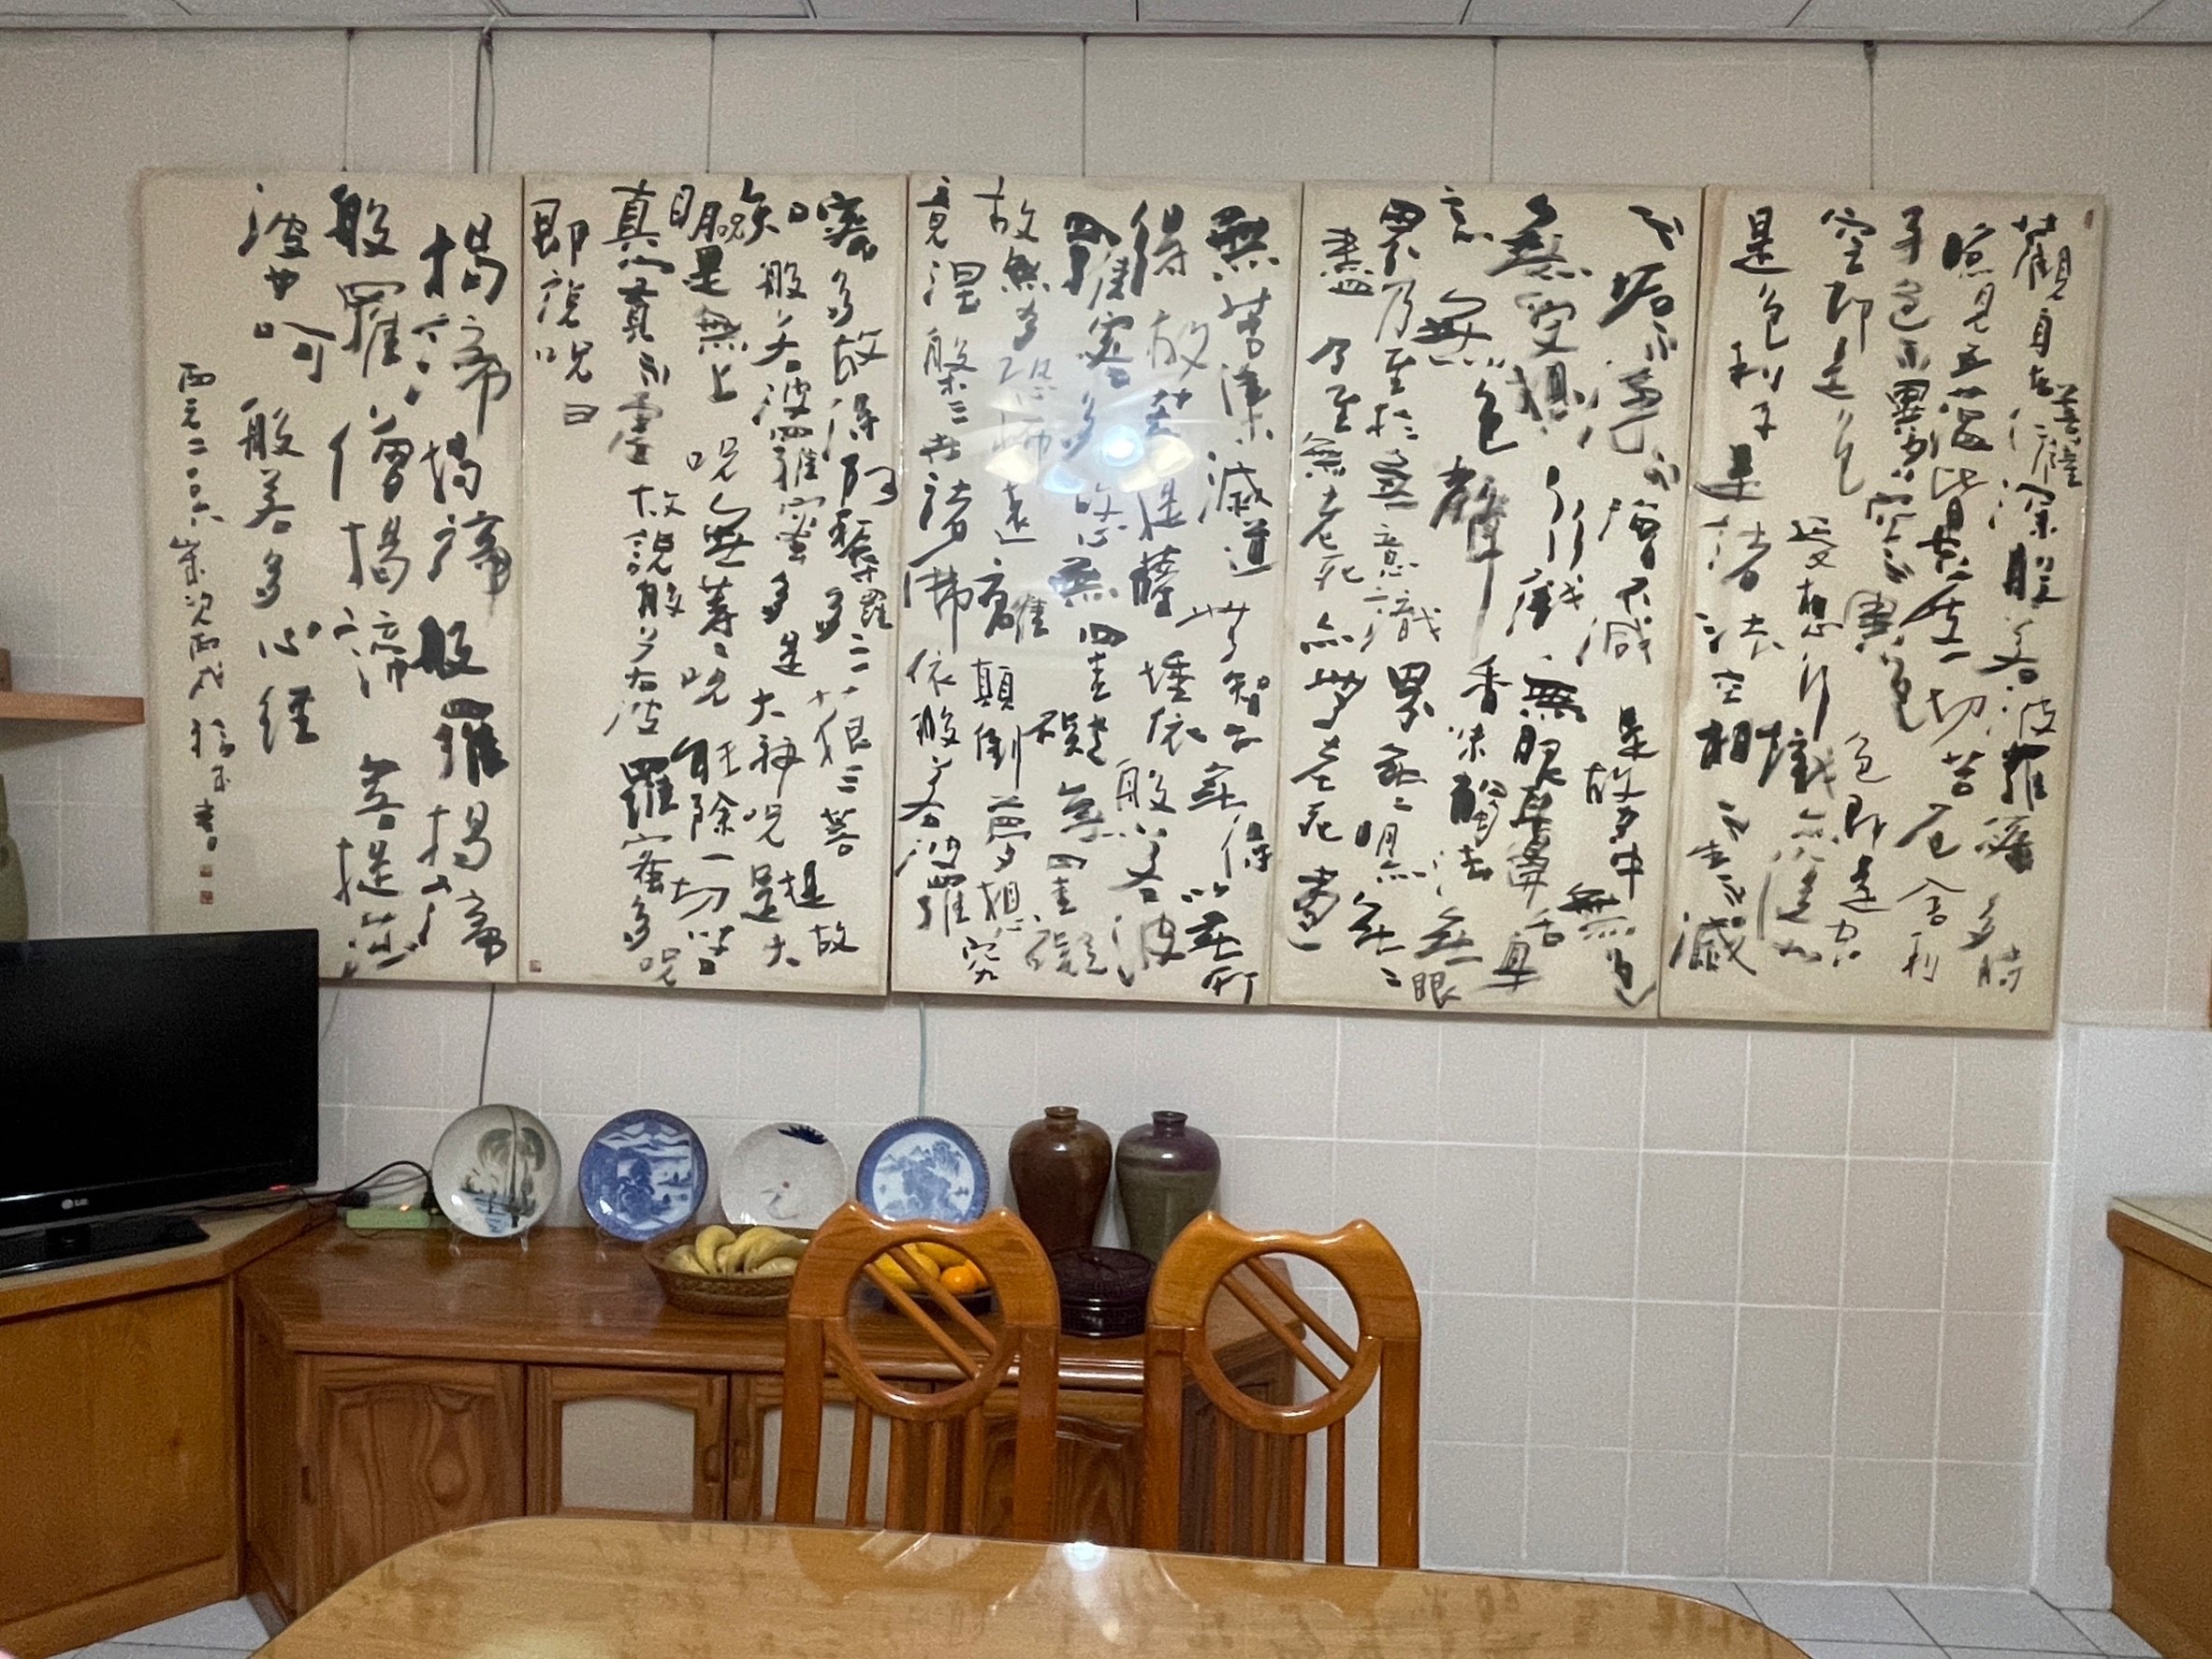 觀自在菩薩行深般若波羅蜜多時
照見五蘊皆空度一切苦厄舍利
子色不異空空不異色色即是空
空即是色受想行識亦復如
是色利子是諸法空相不生不滅
不垢不淨不增不減是故空中無色
無受想行識無眼耳鼻舌身
意無色聲香味觸法無眼
界乃至於無意識界無〻明無〻
盡乃至無老死亦無老死盡
無苦集滅道無智亦無得以無所
得故菩提薩埵依般若波
羅蜜多故心無罣礙無罣礙
故無有恐怖遠離顛倒夢想究
竟涅槃三世諸佛依般若波羅
蜜多故得阿耨多羅三藐三菩提故
知般若波羅蜜多是大神咒是大
明咒是無上咒無等〻咒能除一切苦
真實不虛故說般若波羅蜜多咒
即說咒曰
揭諦揭諦般羅揭諦
般羅僧揭諦菩提莎
婆呵般若多心經
西元二〇〇六歲次丙戌書
LG